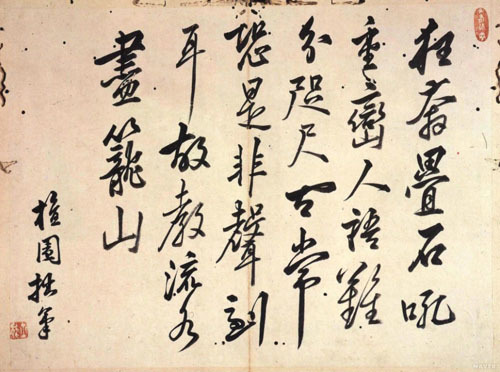 狂奔疊石吼
重巒人語難
分咫尺間常
恐是非聲到
耳故教流水
盡籠山
檀園拙筆